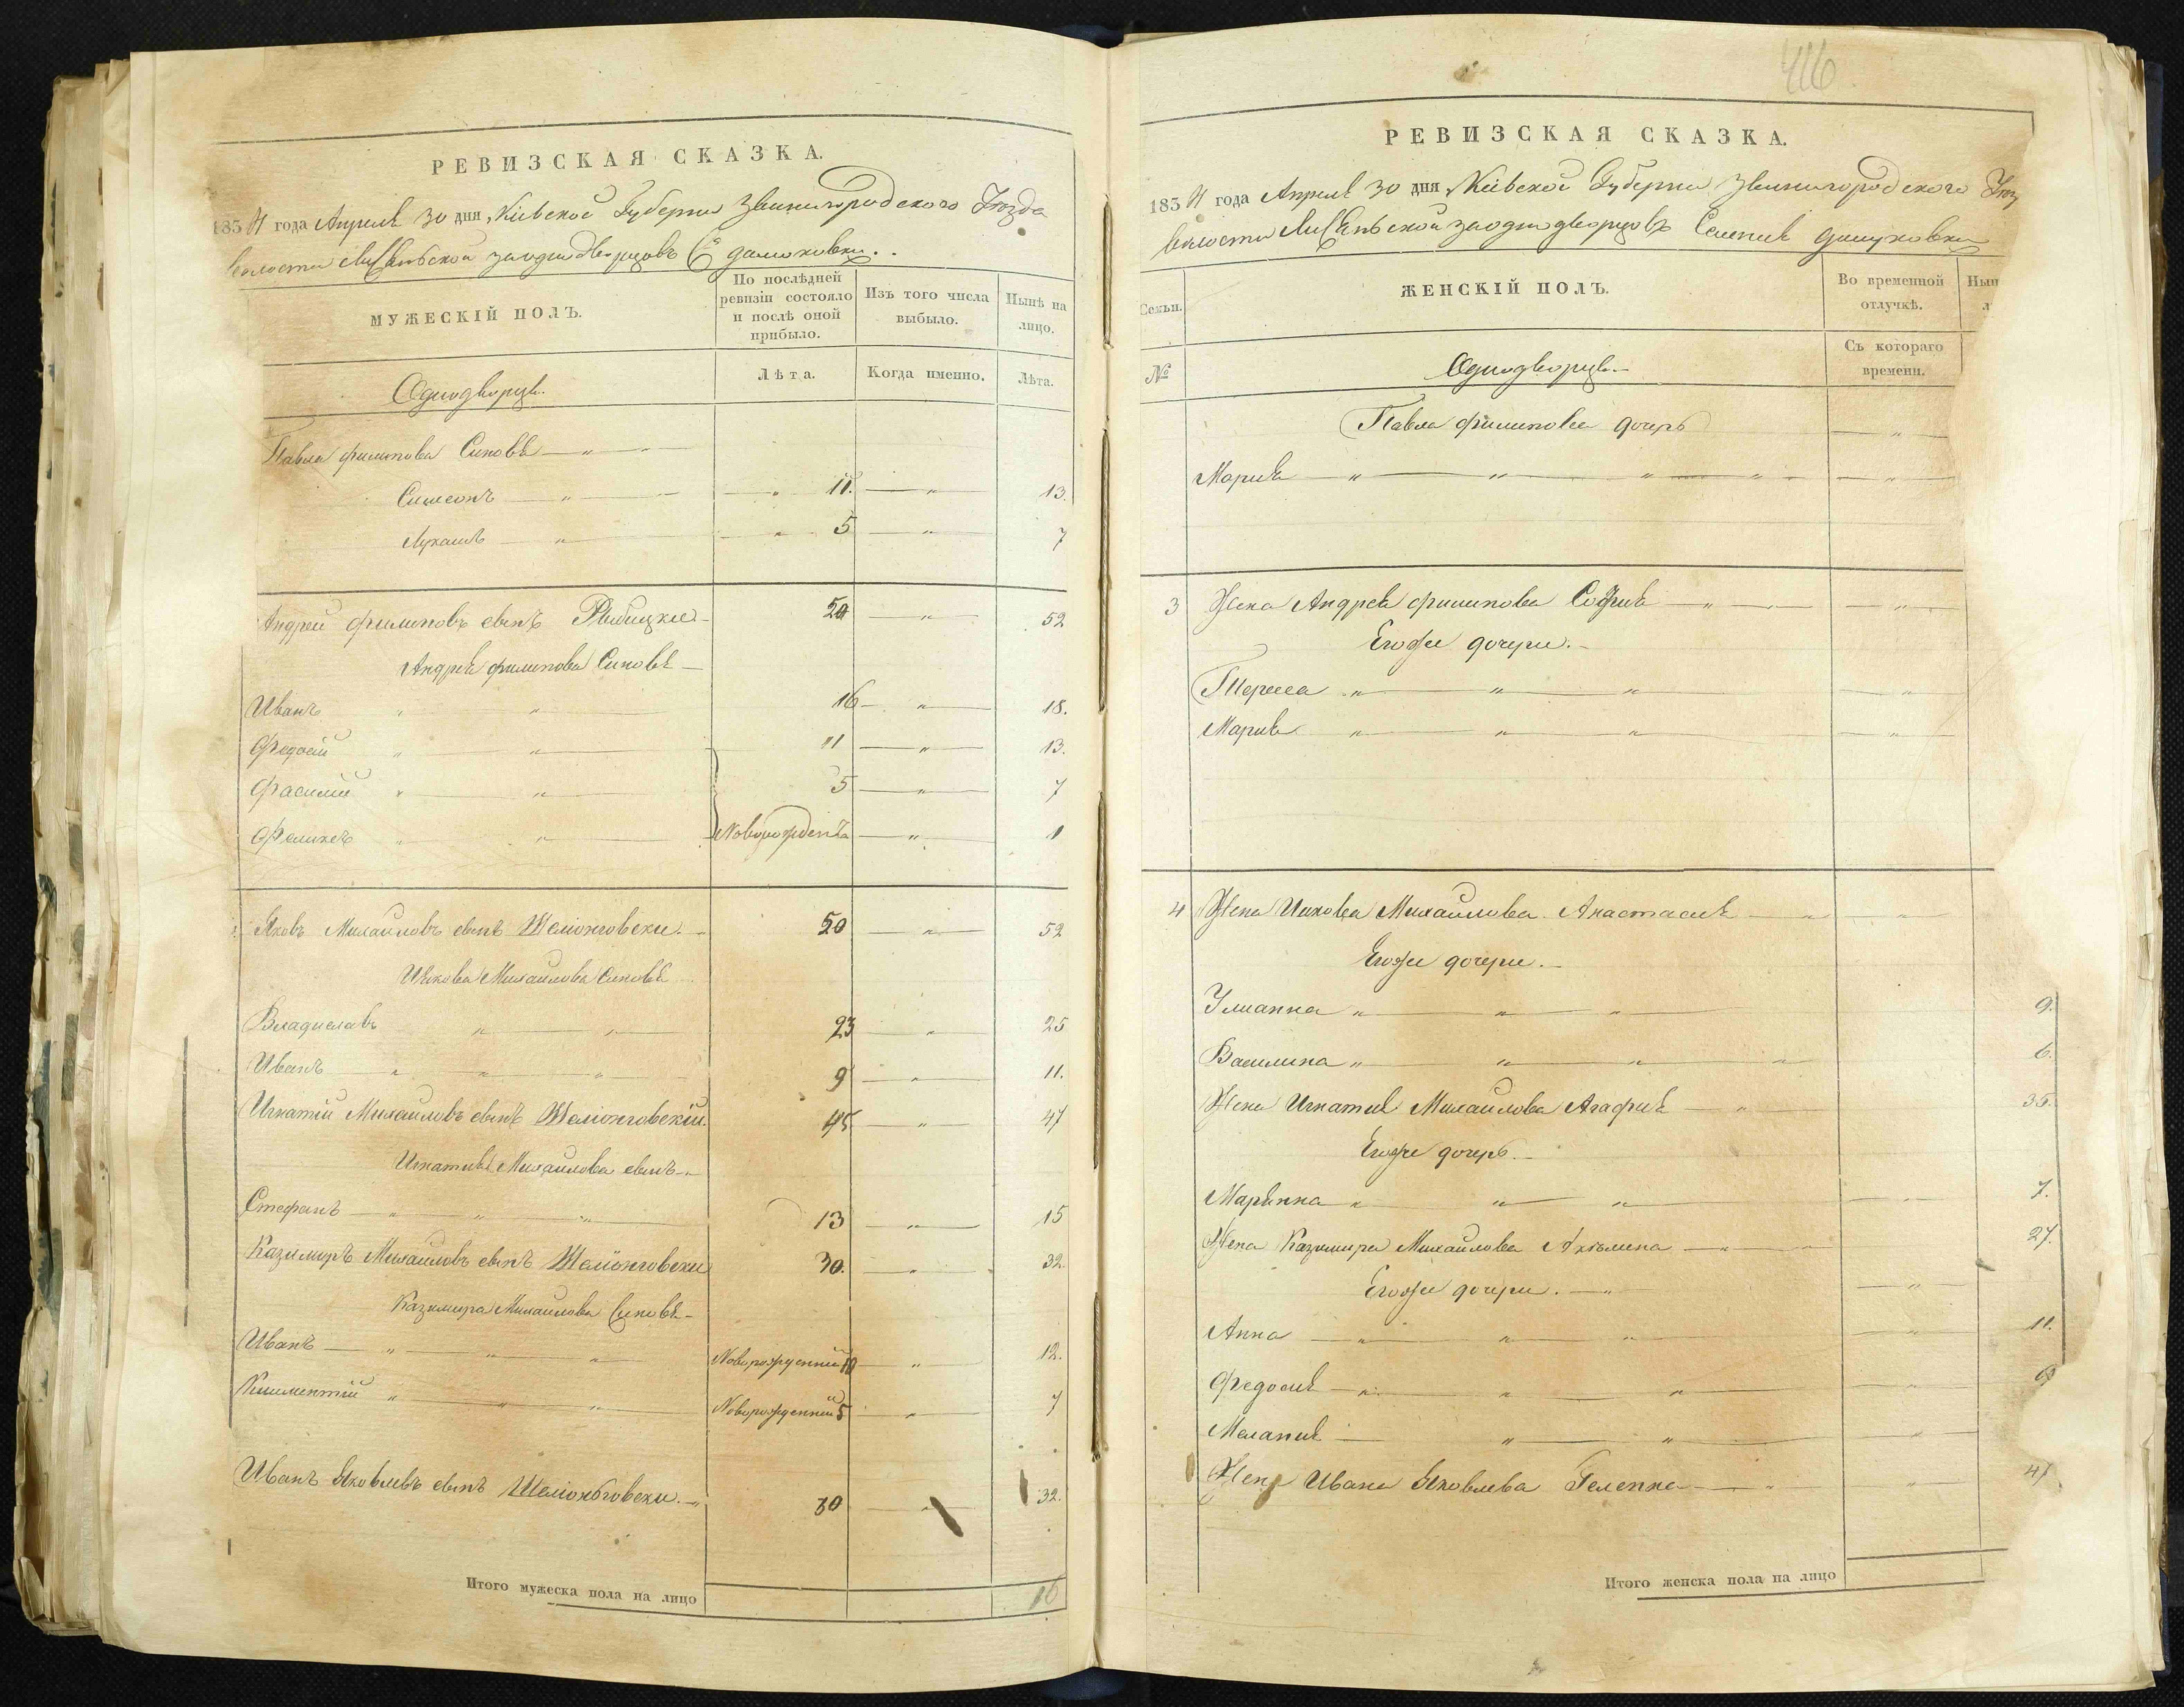 РЕВИЗСКАЯ СКАЗКА.
1834 года Апреля 30 дня, Кіевской Губерни Звенигородского Уѣзда
волости заоднодворцовъ
МУЖЕСКІЙ ПОЛЪ.
По послѣдней ревизіи состояло и послѣ оной прибыло.
Изъ того числа выбыло.
Нынѣ на лицо.
Однодворцы.
Лѣта.
Когда именно.
Лѣта.
Павла Филипова Синовѣ — " —
Симеонъ — " — 11. — " — 13.
Лукашъ — " — 5 — " — 7
Андрей Филиповъ сынъ 50 — " — 52
Андрея Филипова Синовѣ —
Иванъ " " 16 — " — 18.
Федосій " " 11 — " — 13.
Фасилий " " 5 — " — 7
Феликсъ " " Новорожденъ — " — 1
Яковъ Михайловъ сынъ Шелионговски. — 50 — " — 52
Иякова Михайлова Синовѣ
Владиславъ " " 23 — " — 25
Иванъ " " " 9 — " — 11.
Игнатій Михайловъ сынъ Шелионговскій. 45 — " — 47
Игнатия Михайлова сынъ — "
Стефанъ — " " " 13 — " — 15
Казимиръ Михайловъ сынъ Шелионговски 30. — " — 32.
Казимира Михайлова Синовѣ —
Иванъ — " " " Новорожденний 10 — " — 12.
Климентій " " " Новорожденний 5 — " — 7
Иванъ Яковлевъ сынъ Шелионьговски. — " 30 — " — 32.
Итого мужеска пола на лицо 16
416
РЕВИЗСКАЯ СКАЗКА.
1834 года Апреля 30 дня, Кіевской Губерни Звенигородского Уѣз
волости заоднодворцовъ Селения
Семьи.
ЖЕНСКІЙ ПОЛЪ.
Во временной отлучкѣ.
Нын
№
Однодворцы. —
Съ котораго времени.
Павла Филипова дочерь — " —
Мария — " — " — " — " — " —
3 Жена Андрея Филипова София — " — " —
Егоже дочери. —
Тереса " " " — " —
Мария " " " — " —
4 Жена Иякова Михайлова Анастасия — " — " —
Егоже дочери. —
Улианна " " " 9.
Василина " " " " 6.
Жена Игнатия Михайлова Агафия — " — 35.
Егоже дочерь. —
Марянна " " " — " — 7.
Жена Казимира Михайлова Акѣлина — " — 27.
Егоже дочери. — " — " —
Анна — " " " — " — 11.
Федосия — " " " — " — 9
Мелания — " " — " —
Жена Ивана Яковлева Геленна — " — " —
Итого женска пола на лицо